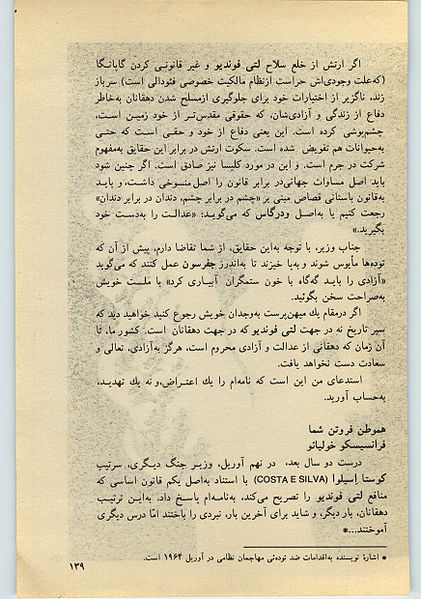 اگر ارتش از خلع سلاح لتی فوندیو و غیر قانونی کردن گاپانگا
(که‌علت وجودی‌اش حراست ازنظام مالکیت خصوصی فئودالی است) سرباز
زند، ناگزیر از اختیارات خود برای جلوگیری ازمسلح شدن دهقانان به‌خاطر
دفاع از زندگی و آزادی‌شان، که حقوقی مقدس‌تر از خود زمین است،
چشم‌پوشی کرده است. این یعنی دفاع از خود و حقی است که حتی
به‌حیوانات هم تفویض شده است. سکوت ارتش در برابر این حقایق به‌مفهوم
شرکت در جرم است. و این در مورد کلیسا نیز صادق است. اگر چنین شود
باید اصل مساوات جهانی‌در برابر قانون را اصل‌منسوخی داشت، و باید
به‌قانون باستانی قصاص مبنی بر «چشم در برابر چشم، دندان در برابر دندان»
رجعت کنیم یا به‌اصل ودرگاس که می‌گوید: «عدالت را به‌دست خود
بگیرید.»
جناب وزیر، با توجه به‌این حقایق، از شما تقاضا دارم، پیش از آن که
توده‌ها مأیوس شوند و به‌پا خیزند تا به‌اندرز جفرسون عمل کنند که می‌گوید
«آزادی را باید گه‌گاه با خون ستمگران آبیاری کرد» با ملت خویش
به‌صراحت سخن بگوئید.
اگر درمقام یك میهن‌پرست به‌وجدان خویش رجوع کنید خواهید دید که
سیر تاریخ نه در جهت لتی فوندیو که در جهت دهقانان است. کشور ما، تا
آن زمان که دهقانی از عدالت و آزادی محروم است، هرگز به‌آزادی، تعالی و
سعادت دست نخواهد یافت.
استدعای من این است که نامه‌ام را یك اعتراض، و نه یك تهدید،
به‌حساب آورید.
هموطن فروتن شما
فرانسیسکو خولیائو
درست دو سال بعد، در نهم آوریل، وزیر جنگ دیگری، سرتیپ
کوستا اسیلوا (COSTA E SILVA) با استناد به‌اصل یکم قانون اساسی که
منافع لتی فوندیو را تصریح می‌کند، به‌نامه‌ام پاسخ داد. به‌این ترتیب
دهقانان، بار دیگر، و شاید برای آخرین بار، نبردی را باختند امّا درس دیگری
آموختند...*
* اشارهٔ نویسنده به‌اقدامات ضد توده‌ئی مهاجمان نظامی در آوریل ۱۹۶۴ است.
۱۳۹